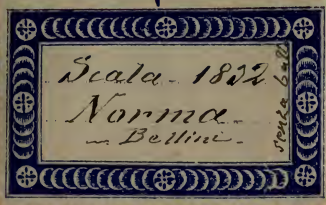 Scala - 1832
Norma -
Bellini -
senza balli